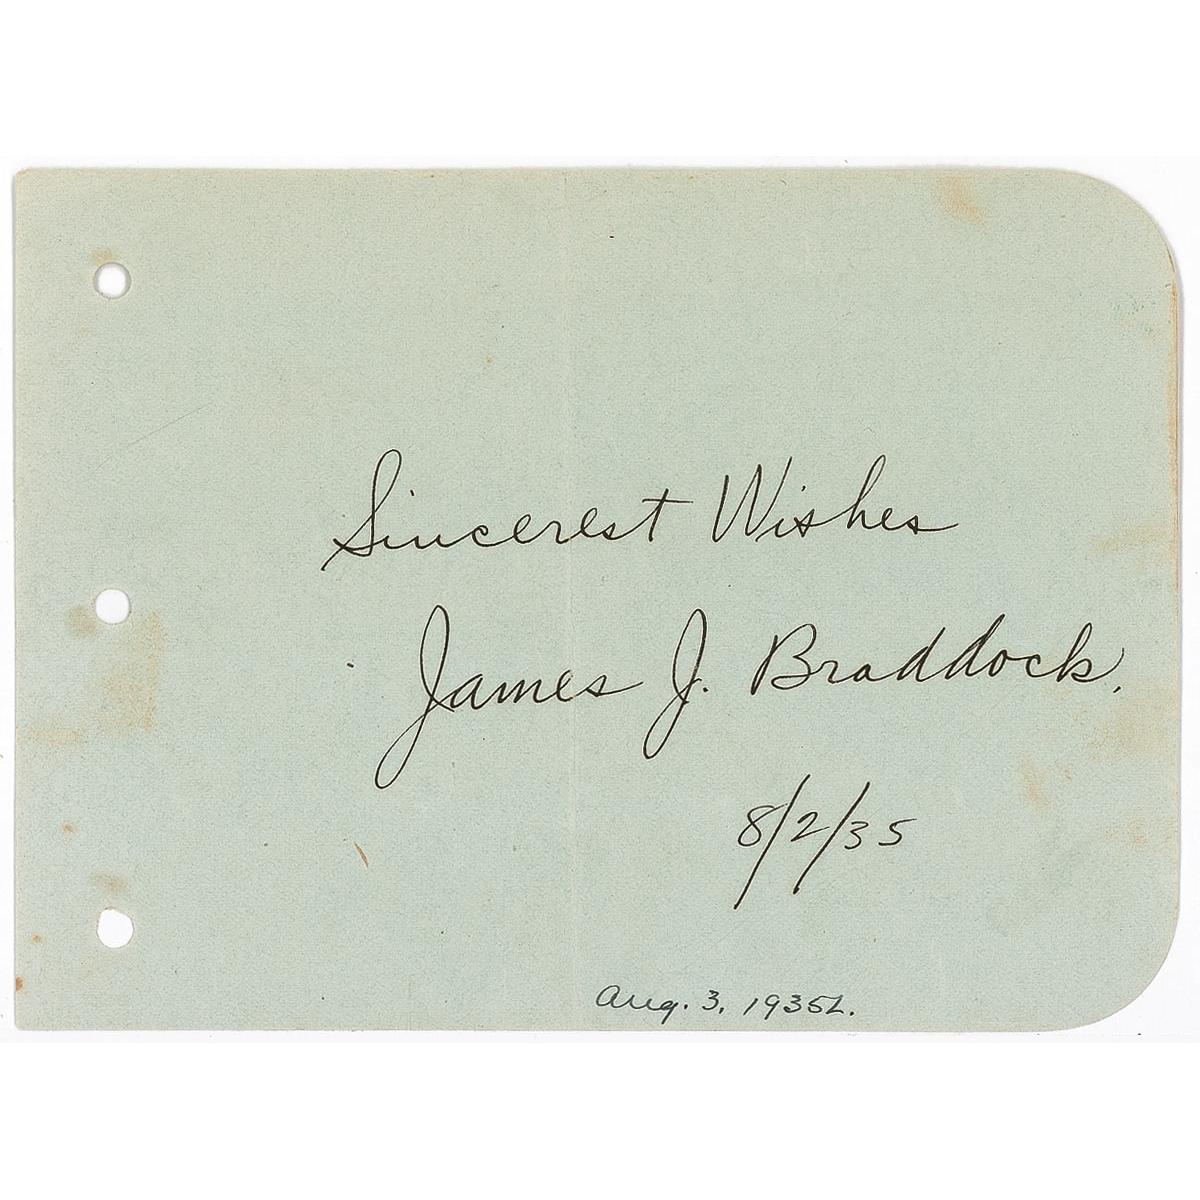 Sincerest Wishes
James J. Braddock.
8/2/35
Aug. 3, 1935L.